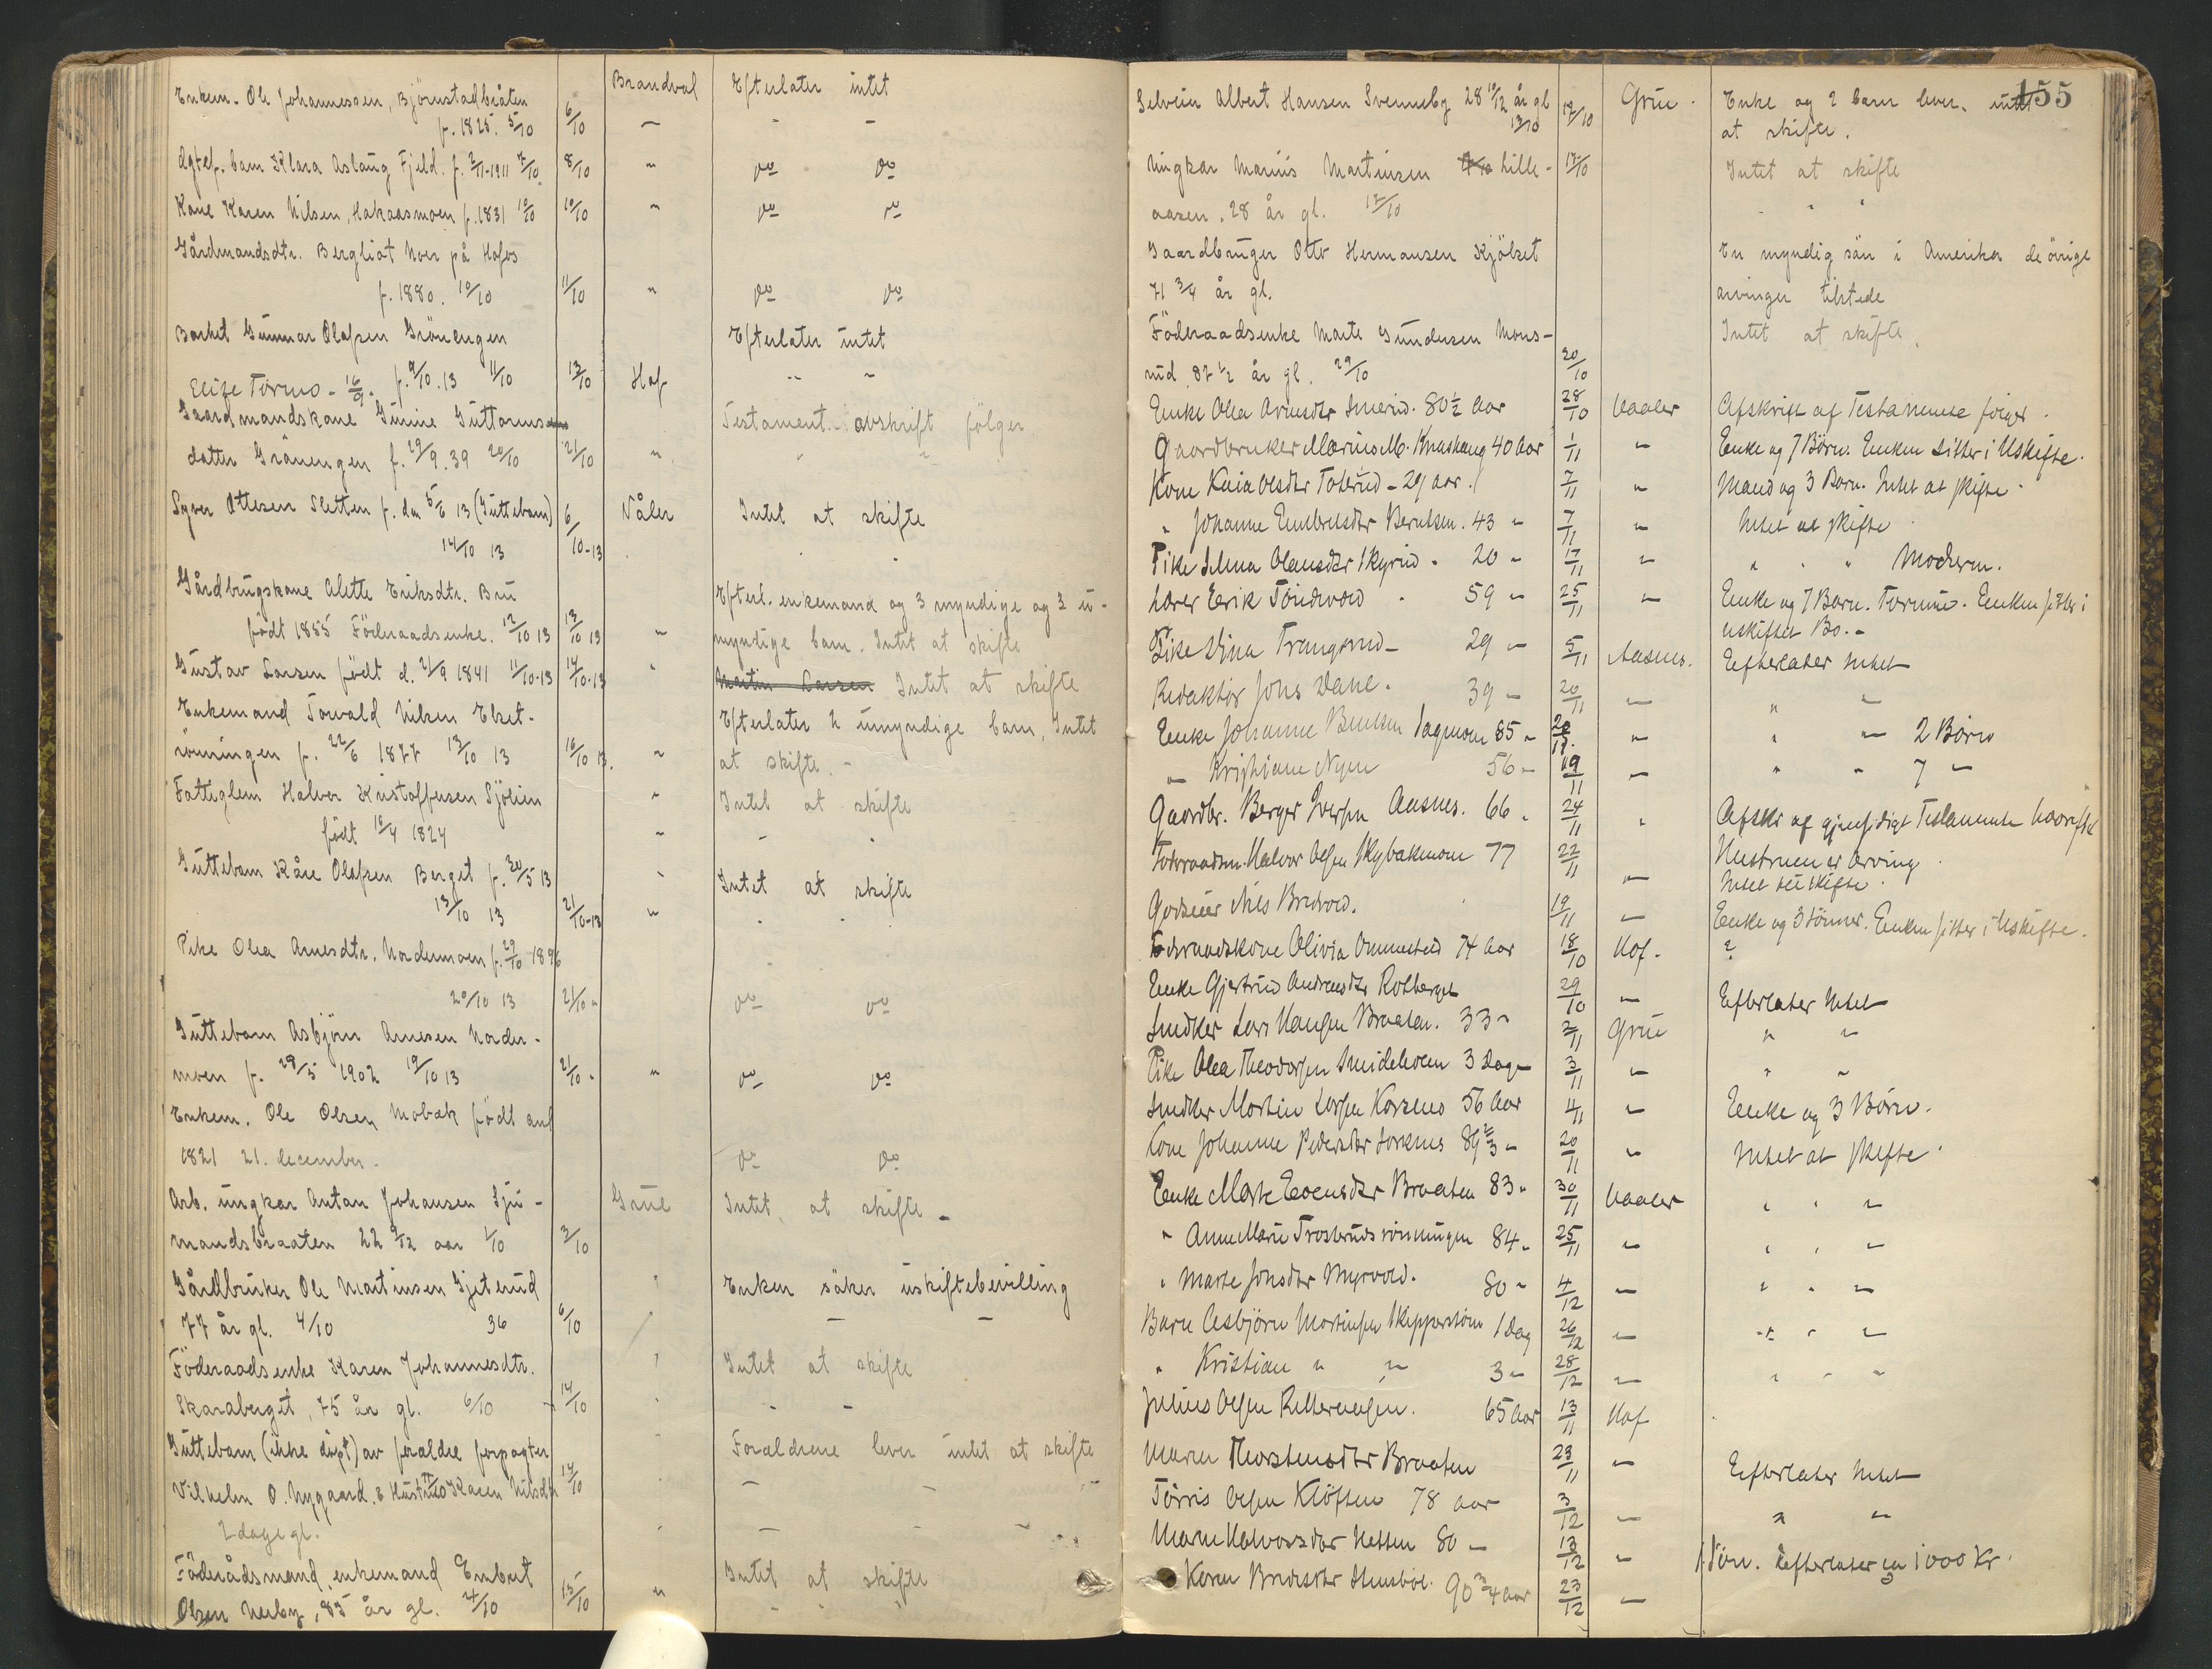 Brandval Efterlater intet
Enkem. Ole Johannessen, Björnstadbråten
f. 1825. 5/10 6/10 — - -
Ægtef. barn Klara Aslaug Fjeld. f. 2/11-1911 7/10 8/10 " do do
Kone Karen Nilsen, Hakaasmoen f. 1831 10/10 10/10 " do do
Gårdmandsdtr. Bergliot Noer på Hofos
f. 1880. 10/10 11/10 " do do
Barnet Gunnar Olafsen Grönengen Efterlater intet
f. 9/10.13 11/10 13/10 Hof " "
Elise Tormo - 16/9.
Gaardmandskone Gunine Guttorms Testament. avskrift følger
datter Grånengen f. 29/9.39 20/10 21/10 " " "
Syver Ottesen Sletten f. den 5/6 13 (Guttebarn) 6/10-13 Våler Intet at skifte
14/10 13
Gårdbrugskone Olette Eriksdtr. Bru Efterl. enkemand og 3 myndige og 2 u-
født 1855 Föderaadsenke. 12/10 13 13/10 13 " myndige barn. Intet at skifte
Gustav Larsen født d. 21/9 1841 11/10-13 14/10-13 " Intet at skifte
Enkemand Torvald Nilsen Elset- Efterlater 2 umyndige barn, Intet
rönningen f. 22/6 1877 13/10 13 16/10 13. " at skifte. -
Fattiglem Halvor Kristoffersen Sjölien " Intet at skifte
født 10/4 1824 " - "
Guttebarn Kåre Olafsen Berget f. 30/5 13 " Intet at skifte
13/10 13 21/10-13 " " "
Pike Olea Arnesdtr. Nordermoen f. 29/10 1896
20/10 13 21/10 " do do
Guttebarn Asbjörn Arnesen Norder-
moen f. 29/5 1902 19/10 13 21/10 " " do do
Enkem. Ole Olsen Mobæk født anf
1821 21. december. do do
Arb. ungkar Anton Johansen Sju- Grue Intet at skifte -
mandsbraaten 22 9/12 aar 1/10 3/10
Gårdbruker Ole Martinsen Gjeterud " Enken söker uskiftebevilling
77 år gl. 4/10 36 6/10 — —
Föderaadsenke Karen Johannesdtr. " Intet at skifte
Skaraberget, 75 år gl. 6/10 14/10 " - -
Guttebarn (ikke döpt) av foraldre forpagter " Foraldrene lever intet at skifte
Vilhelm O. Nygaard. & Hustru Karen Nilsdtr 14/10 " — - -
2 dage gl.
Föderådsmand, enkemand Embret Intet at skifte
Olsen Nerby, 85 år gl. 14/10 15/10 " - " "
155
Selveier Albert Hansen Svenneby 28 10/12 år gl 17/10 Grue. Enke og 2 barn lever. intet
13/10 at skifte.
Ungkar Marius Martinsen Lille- 17/10 Intet at skifte
aasen. 28 år gl. 12/10 " " "
Gaardbruger Otto Hermansen Kjölset En myndig sön i Amerika de övrige
71 3/4 år gl. arvinger tilstede
Föderaadsenke Marte Gundersen Mons- Intet at skifte.
rud 87 1/2 år gl. 29/10 30/10
Enke Olea Arnesdtr Smerud. 80 1/2 Aar 28/10 Vaaler Afskrift af Testamente følger.
Gaardbruker Marius M. Knashaug 40 Aar 1/11 " Enke og 7 Börn. Enken sitter i Uskifte.
Kone Kaia Olsdtr Toterud - 29 aar. 7/11 " Mand og 3 Barn. Intet at skifte.
" Johanne Embretsdtr Berntsen. 43 " 7/11 " Intet at skifte
Pike Selma Olausdtr Skyrud. 20 " 17/11 " " " " Moderen.
Lærer Eerik Töndvold . 59 " 25/11 " Enke og 7 Barn. Formue. Enken sitter i
uskiftet Bo. -
Pike Stina Trangsrud - 29 " 5/11 Aasnes. Efterlater Intet
Redaktör Jons Dahl. 39 " 20/11 " " "
Enke Johanne Bentsen Dagmoen 85 " 20/11. " " " 2 Börn
" Kristiane Nyen 56 " 19/11 " " " 7 "
Gaardbr. Berger Iversen Aasnes. 66 " 24/11 " Afskr af gjensidigt Testamente hvorefter
Hustruen er arving.
Foderaadsm. Halvor Olsen Skybakmoen 77 22/11 " Intet til skifte.
Godseier Nils Bredvold. 19/11 " Enke og 3 Sönner. Enken sitter i Uskifte.
Foderaadskone Olivia Ommestad 74 Aar 18/10 Hof. ?
Enke Gjertrud Andreasdtr Rotberget 29/10 " Efterlater Intet
Snedker Lars Hansen Braaten. 33 " 3/11 Grue " "
Pike Olea Theodorsen Smideholen 3 Dage 3/11 " " "
Snedker Martin Larsen Korsmo 56 Aar 4/11 " Enke og 3 Börn.
Kone Johanne Pedersdtr Korsmo 89 2/3 " 20/11 " Intet at skifte.
Enke Marte Evensdtr Braaten 83 " 30/11 Vaaler " " "
" Anne Marie Trosterudsrönningen 84 " 25/11 " " " "
" Marte Jonsdtr Myrvold. 80 " 4/12 " " " "
Barn Asbjörn Mortinsen Skepperstöen 1 Dag 26/12 " " " "
" Kristian " " 3 " 28/12 " " " "
Julius Olsen Rettervolsen. 65 Aar 13/11 Hof
Maren Thorstensdtr Braaten 23/11 " Efterlater Intet
Törris Olsen Klöften 78 aar 3/12 " " "
Maren Halvorsdtr Netten 80 — 13/12 " 1 Sön. Efterlater ca 1000 Kr.
Karen Bredesdtr Stensböl. 90 3/4 aar 23/12 "